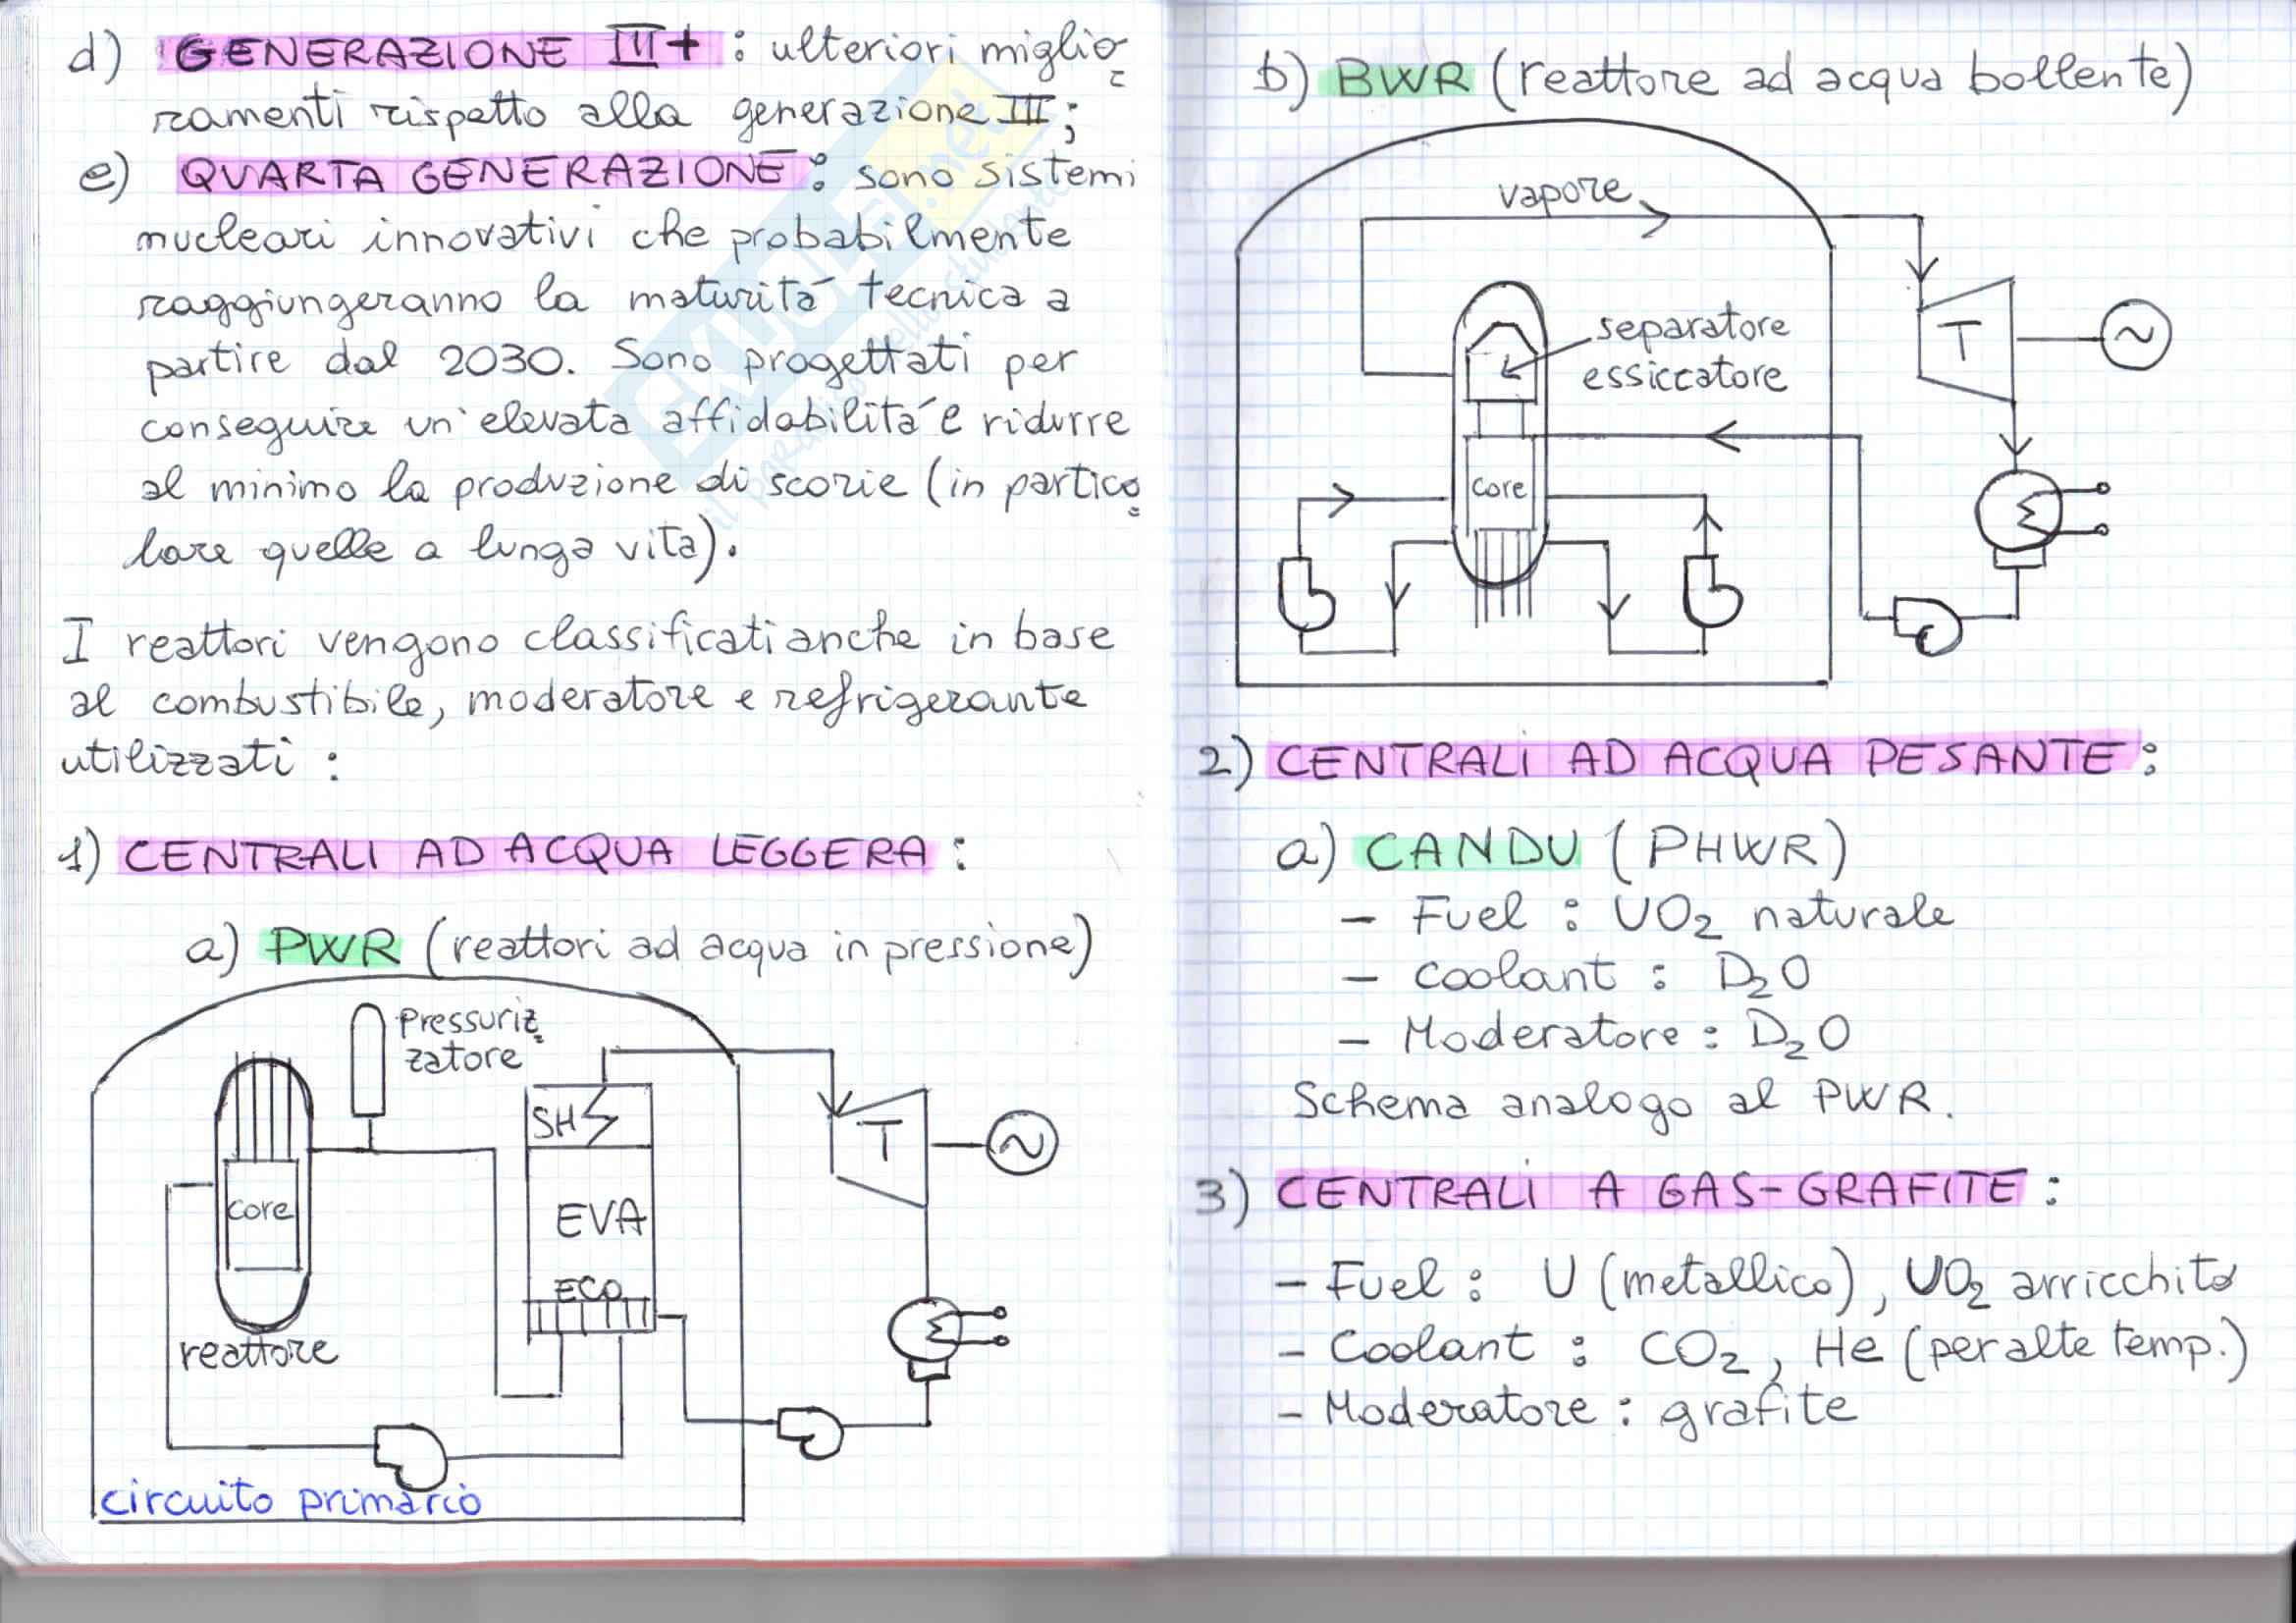 d) GENERAZIONE III+ : ulteriori miglio=
ramenti rispetto alla generazione III;
e) QUARTA GENERAZIONE: sono sistemi
nucleari innovativi che probabilmente
raggiungeranno la maturitá tecnica a
partire dal 2030. Sono progettati per
conseguire un'elevata affidabilitá e ridurre
al minimo la produzione di scorie (in partico=
lare quelle a lunga vita).
I reattori vengono classificati anche in base
al combustibile, moderatore e refrigerante
utilizzati :
1) CENTRALI AD ACQUA LEGGERA :
a) PWR (reattori ad acqua in pressione)
Pressuriz=
zatore
SH
T
~
core
EVA
ECO
reattore
circuito primario
b) BWR (reattore ad acqua bollente)
vapore
separatore
essiccatore
T
~
core
2) CENTRALI AD ACQUA PESANTE :
a) CANDU (PHWR)
- Fuel : UO2 naturale
- Coolant : D2O
- Moderatore : D2O
Schema analogo al PWR.
3) CENTRALI A GAS-GRAFITE :
- Fuel : U (metallico), UO2 arricchito
- Coolant : CO2, He (per alte temp.)
- Moderatore : grafite